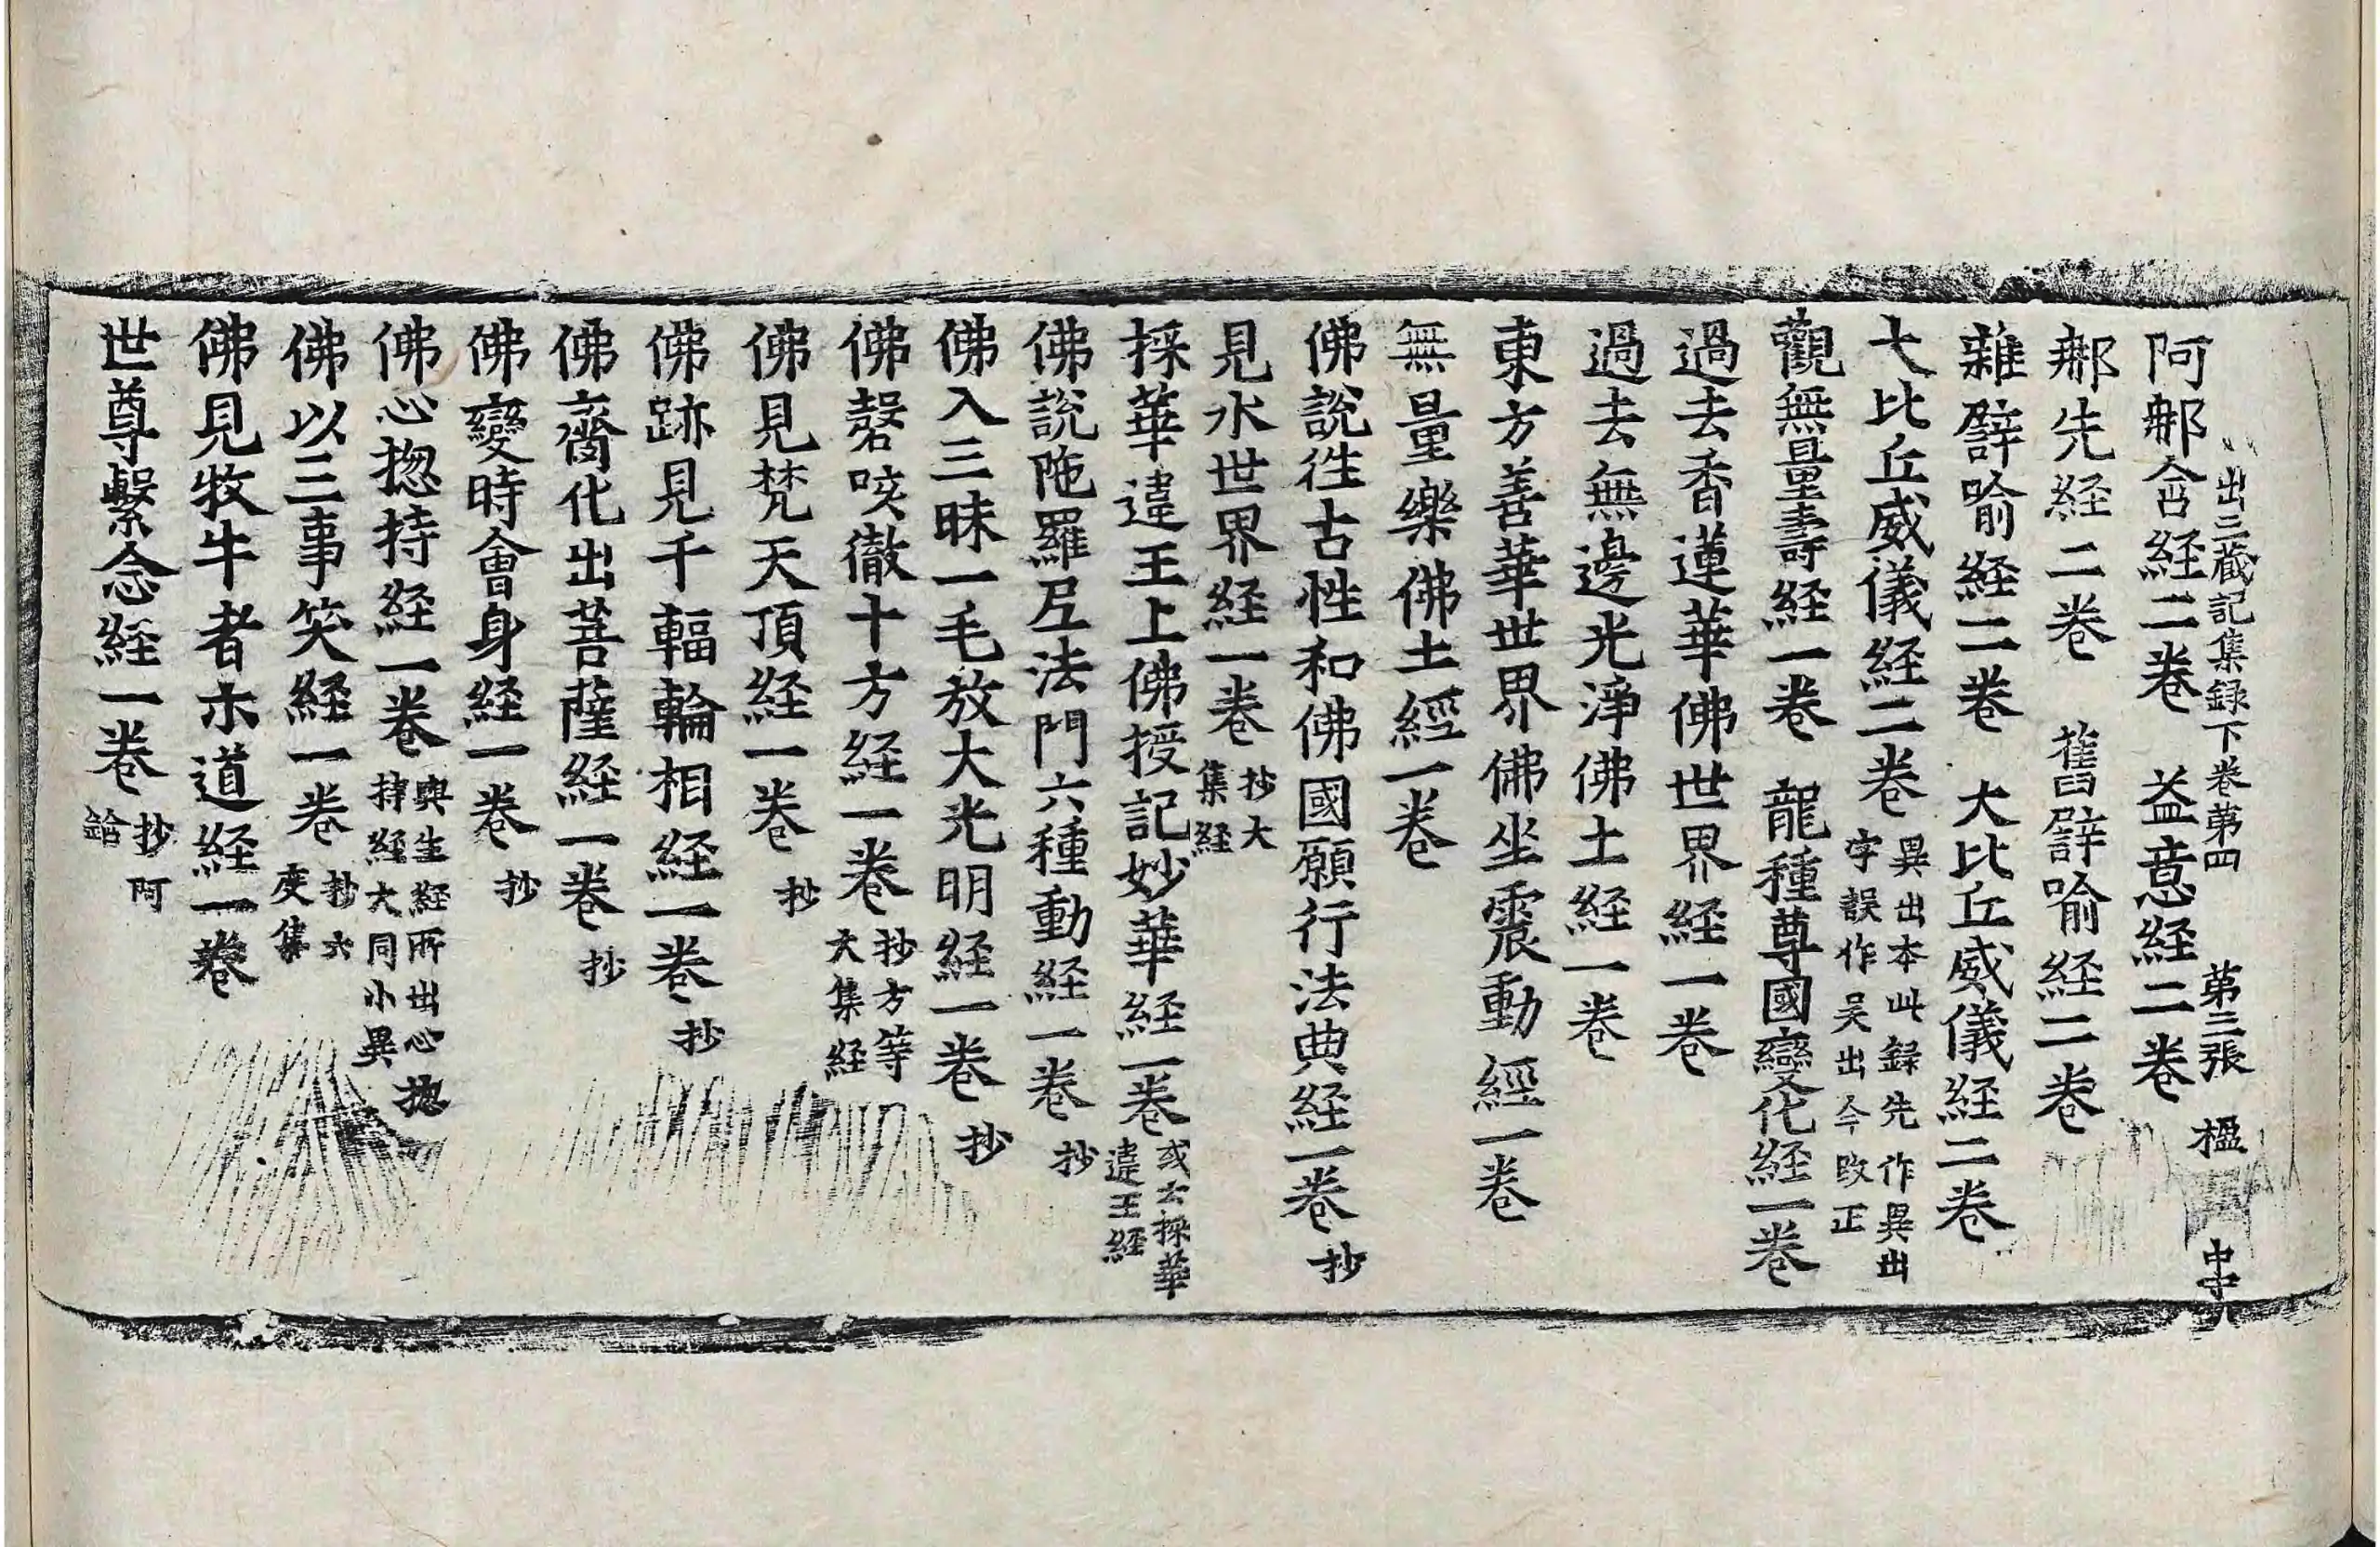 出三藏記集録下卷第四 第三張 楹
阿䣍含経二卷 益意経二卷
䣍先経二卷 舊譬喻経二卷
雜譬喻経二卷 大比丘威儀経二卷
大比丘威儀経二卷 異出本此録先作異出字誤作吴出今改正
觀無量壽経一卷 龍種尊國變化経一卷
過去香蓮華佛世界経一卷
過去無邊光淨佛土経一卷
東方善華世界佛坐震動經一卷
無量樂佛土經一卷
佛說徃古性和佛國願行法典経一卷 抄
見水世界経一卷 抄大集経
採華違王上佛授記妙華経一卷 或云採華違王経
佛說陁羅尼法門六種動経一卷 抄
佛入三昧一毛放大光明経一卷 抄
佛謦咳徹十方経一卷 抄方等大集経
佛見梵天頂経一卷 抄
佛跡見千輻輪相経一卷 抄
佛齎化出菩薩経一卷 抄
佛變時會身経一卷 抄
佛心揔持経一卷 與生経所出心揔持経大同小異
佛以三事笑経一卷 抄六度集
佛見牧牛者示道経一卷
世尊繫念経一卷 抄阿